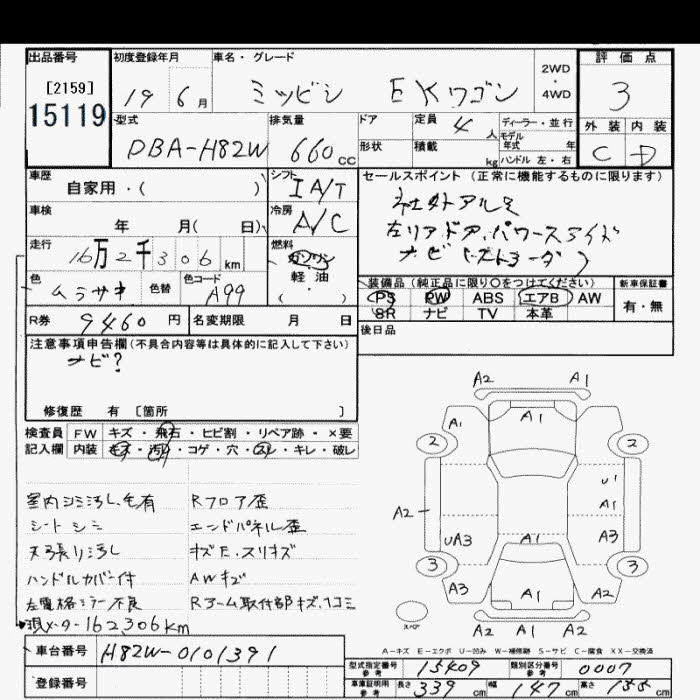 出品番号 初度登録年月 車名・グレード 2WD・4WD 評価点
[2159] 19 6月 ミツビシ EKワゴン 3
15119 型式 排気量 ドア 定員 4人 ディーラー・並行 外装 内装
DBA-H82W 660cc 形状 積載 kg モデル年式 年 ハンドル 左・右 C D
車歴 自家用・( ) シフト IA/T セールスポイント (正常に機能するものに限ります)
車検 年 月( 日) 冷房 A/C 社外アルミ
左リアドア、パワースライド
走行 16万2千306km 燃料 ガソリン 軽油・( )
ナビ
色 ムラサキ 色替 色コード A99 装備品(純正品に限り○をつけてください) 新車保証書
PS PW ABS エアB AW 有・無
SR ナビ TV 本革
R券 9460円 名変期限 月 日 後日品
注意事項申告欄(不具合内容等は具体的に記入して下さい)
ナビ?
修復歴 有 [箇所 ]
検査員 FW キズ・飛石・ヒビ割・リペア跡・×要
記入欄 内装 キズ・汚れ・コゲ・穴・スレ・キレ・破レ
室内シミ汚レ、毛有 Rフロア歪
シート シミ エンドパネル歪
天張リ汚レ キズE、スリキズ
ハンドルカバー付 AWキズ
左電格ミラー不良 Rアーム取付部キズ、凹ミ
現メーター162306km
A2 A1
A1 A1
2 2
A2 U1
A1
UA3 A1 A3
3 3
A3 A1 A2
スペア A2 A1 A2
A-キズ E-エクボ U-凹み W-補修跡 S-サビ C-腐食 XX-交換済
車台番号 H82W-0101391
登録番号
型式指定番号 参考 15409 類別区分番号 参考 0007
車庫証明用 参考 長さ 339cm 幅 147cm 高さ 155cm